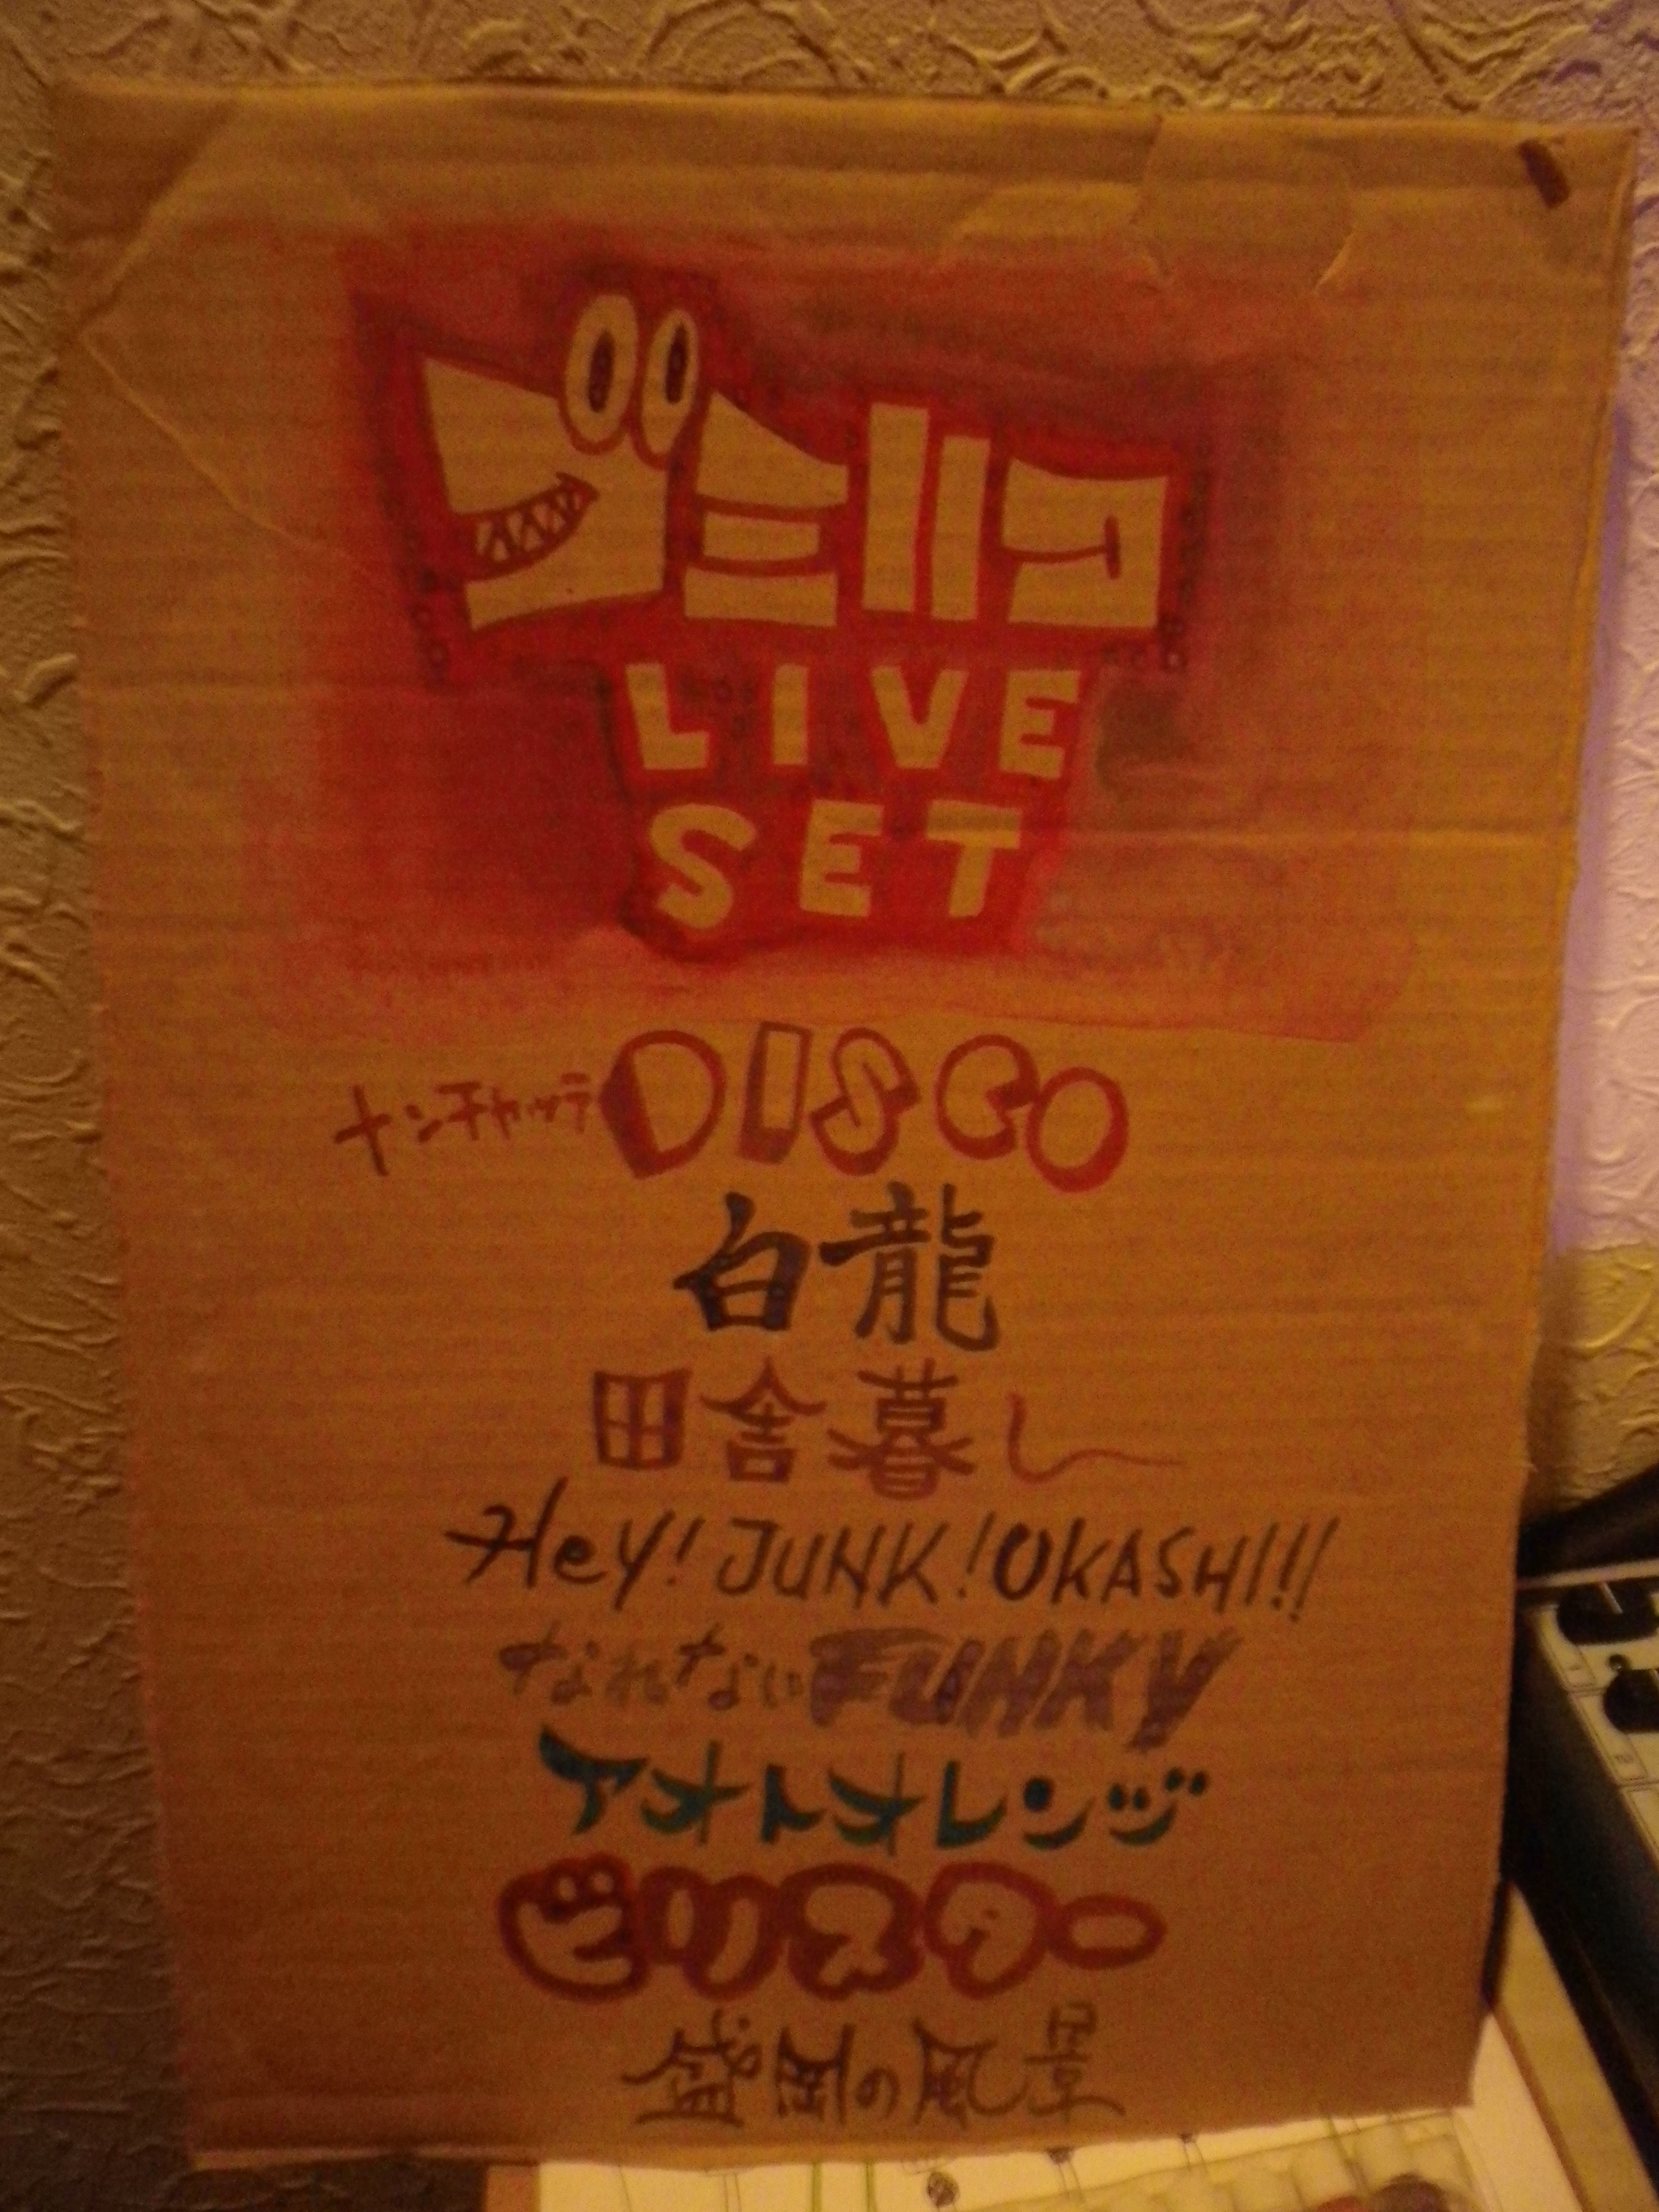 ゴミハコ
LIVE
SET
ナンチャッテDISCO
白龍
田舎暮し
Hey! JUNK! OKASHI!!!
なれないFUNKY
アオトオレンジ
ビリスター
盛岡の風景